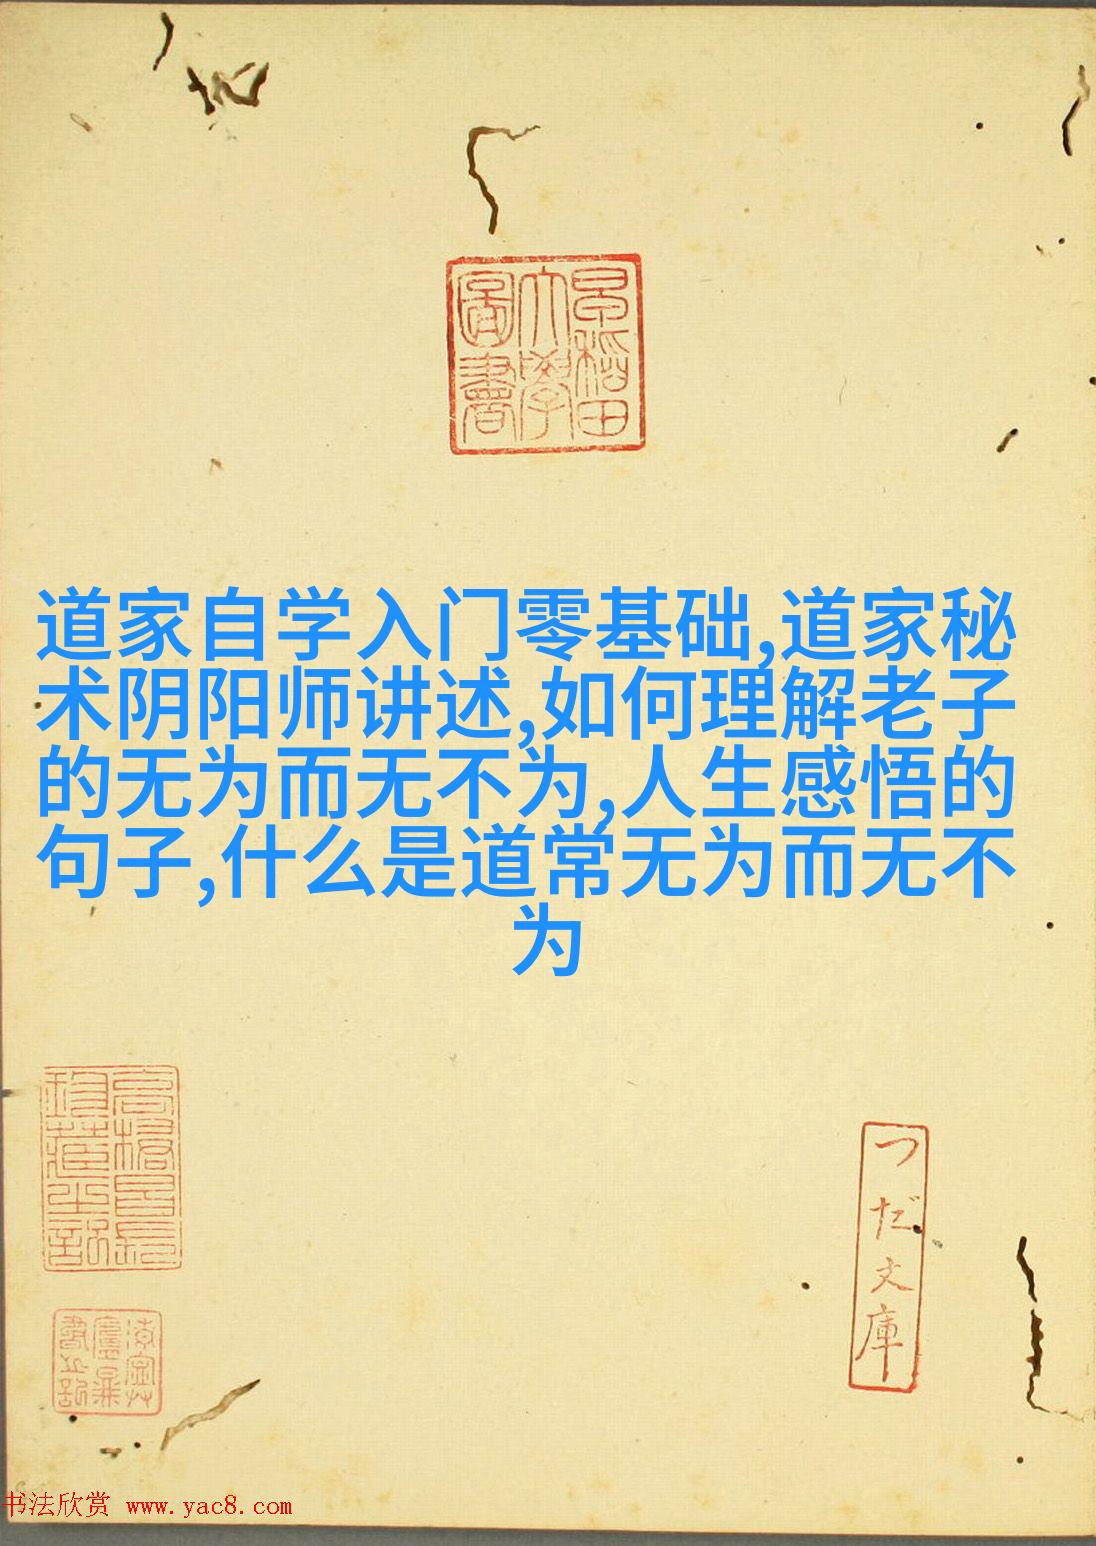 早稻田
大學
圖書
道家自学入门零基础,道家秘
术阴阳师讲述,如何理解老子
的无为而无不为,人生感悟的
句子,什么是道常无为而无不
为
つだ文庫
书法欣赏 www.yac8.com